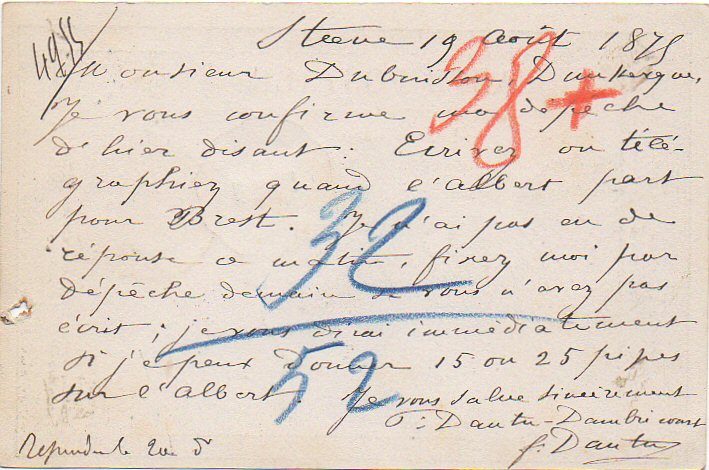 Steene 19 Août 1875
Monsieur Dubuisson, Dunkerque,
Je vous confirme ma dépêche
d'hier disant: Ecrivez ou télé-
graphiez quand l'albert part
pour Brest. Je n'ai pas eu de
réponse ce matin, fixez moi par
dépêche demain si vous n'avez pas
écrit; je vous dirai immédiatement
si j'peux donner 15 ou 25 pipes
sur l'albert. Je vous salue sincèrement
P: Dantu-Dambricourt
f. Dantu
38 +
32
52